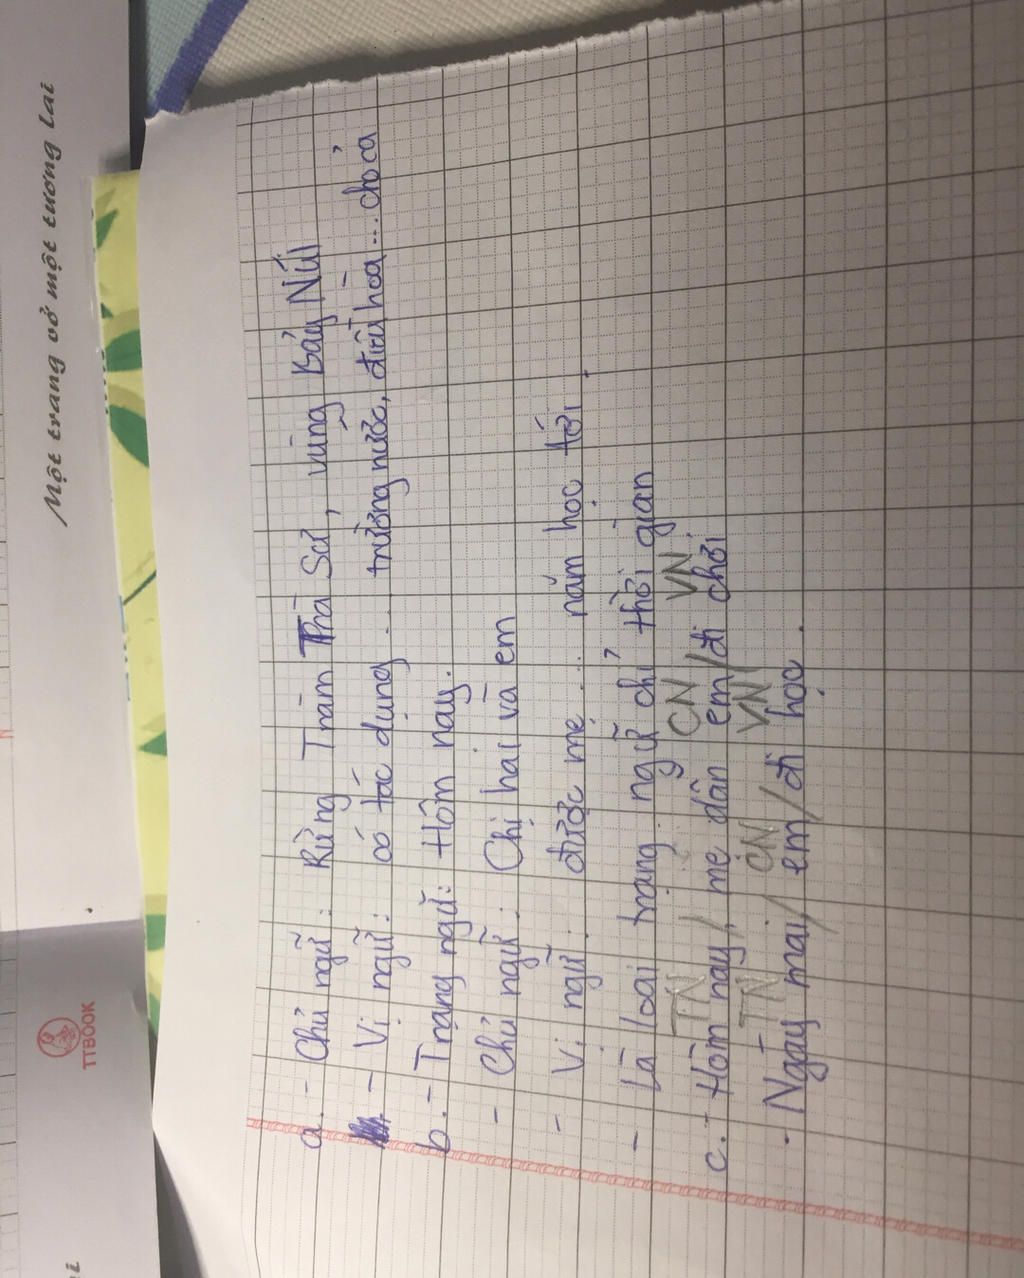 Một trang vở một tương lai
TTBOOK
a. - Chủ ngữ: Rừng Tràm Trà Sư, vùng Bảy Núi
- Vị ngữ: có tác dụng... trường nước, điều hòa... cho cả
b. - Trạng ngữ: Hôm nay.
- Chủ ngữ: Chị hai và em
- Vị ngữ: được mẹ... năm học tới.
- Là loại trạng ngữ chỉ thời gian
TN CN VN
c. - Hôm nay/, mẹ dẫn em/đi chơi.
TN CN VN
- Ngày mai,/ em/đi học.